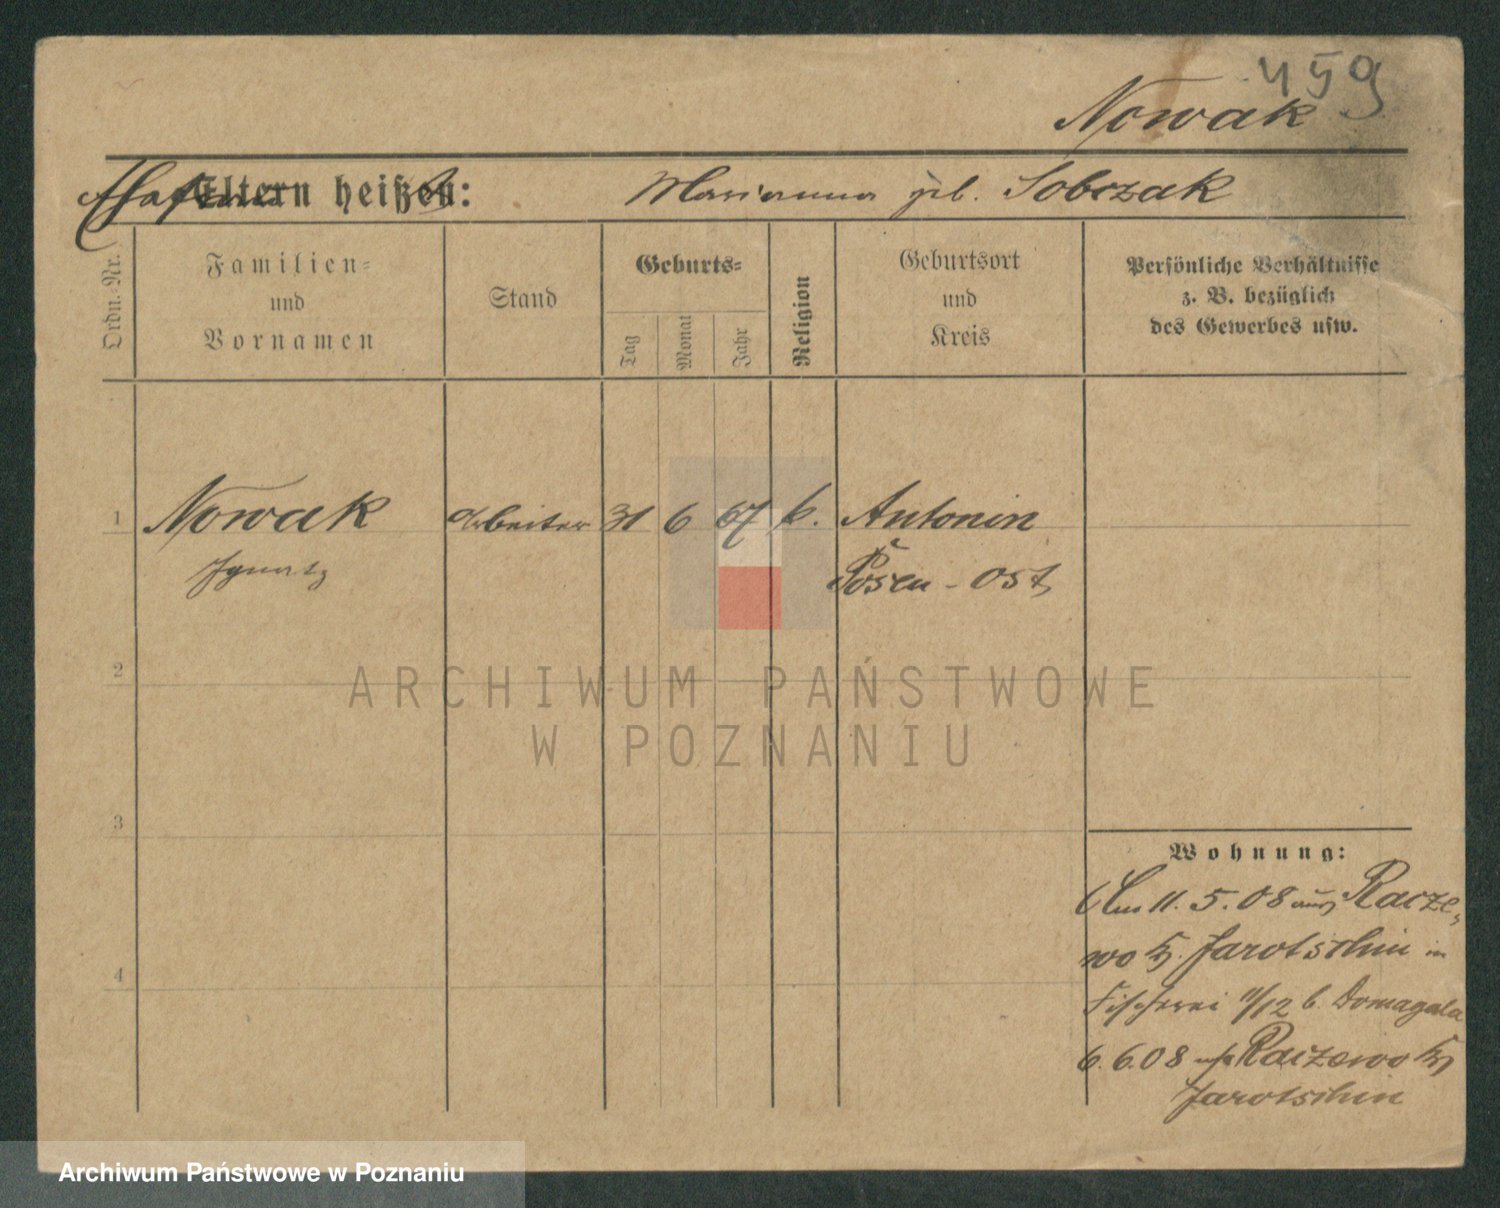 459
Nowak
Eltern heißen: Marianna geb. Sobczak
Ordn.-Nr.
Familien-
und
Vornamen
Stand
Geburts-
Tag
Monat
Jahr
Religion
Geburtsort
und
Kreis
Persönliche Verhältnisse
z. B. bezüglich
des Gewerbes usw.
1 Nowak Arbeiter 31 6 67 k. Antonin
Ignatz Posen-Ost
2
3
4
Wohnung:
Am 11.5.08 aus Racze-
wo Kr. Jarotschin in
Fischerei 11/12 b. Domagala
6.6.08 nach Raczewo Kr
Jarotschin
ARCHIWUM PAŃSTWOWE
W POZNANIU
Archiwum Państwowe w Poznaniu